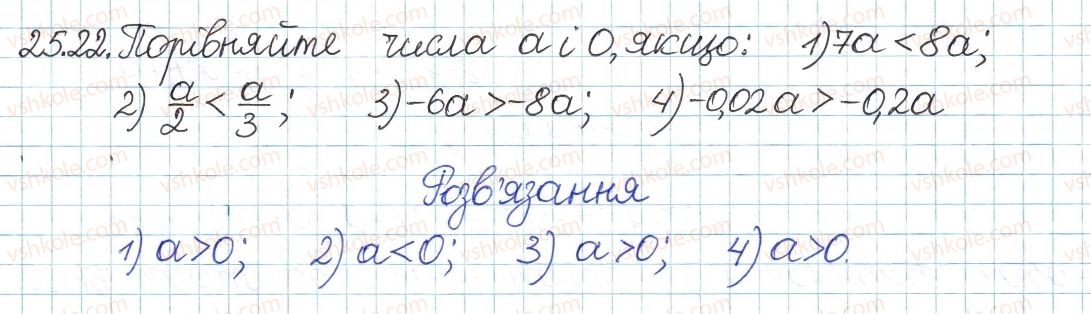 25.22. Порівняйте числа a і 0, якщо: 1) 7a < 8a;
2) a/2 < a/3; 3) -6a > -8a; 4) -0,02a > -0,2a
Розв'язання
1) a > 0; 2) a < 0; 3) a > 0; 4) a > 0.